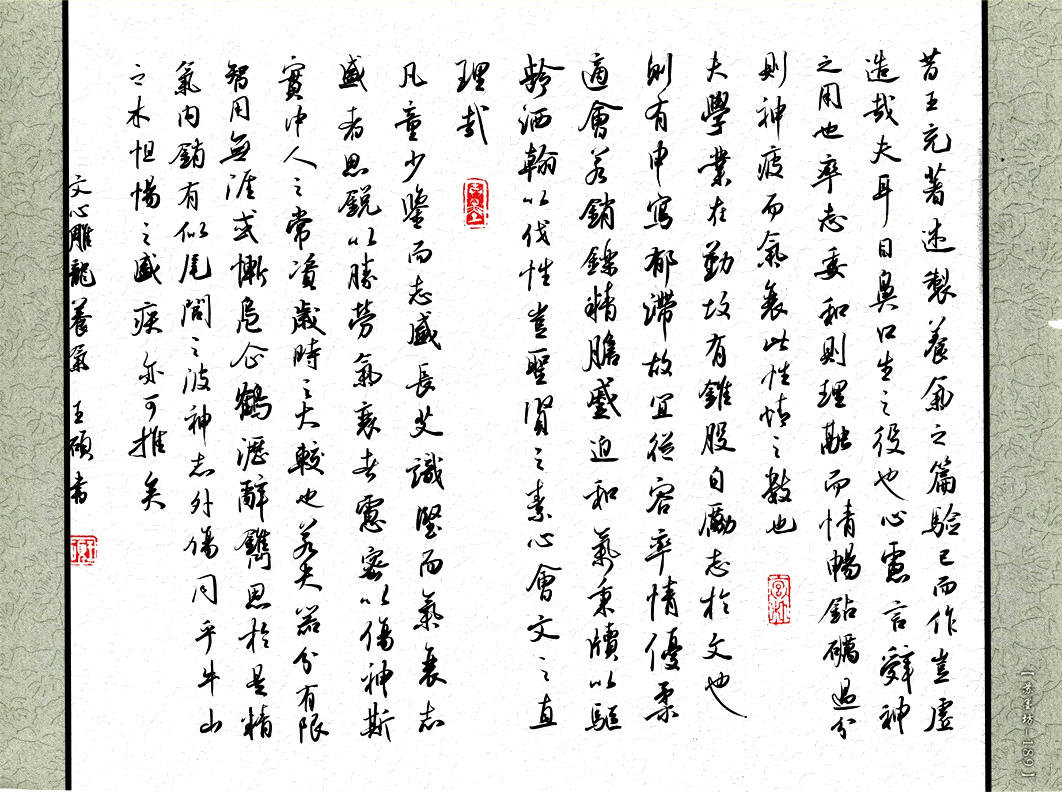 昔王充著述製養氣之篇驗己而作豈虛
造哉夫耳目鼻口生之役也心慮言辭神
之用也率志委和則理融而情暢鉆礪過分
則神疲而氣衰此性情之數也
夫學業在勤故有錐股自勵志於文也
則有申寫郁滯故宜從容率情優柔
適會若銷鑠精膽蹙迫和氣秉牘以驅
齡洒翰以伐性豈聖賢之素心會文之直
理哉
凡童少鑒而志盛長艾識堅而氣衰志
盛者思銳以勝勞氣衰者慮密以傷神斯
實中人之常資歲時之大較也若夫器分有限
智用無涯或慚鳧企鶴瀝辭鐫思於是精
氣內銷有似尾閭之波神志外傷同乎牛山
之木怛惕之盛疾亦可推矣
文心雕龍養氣 王碩書